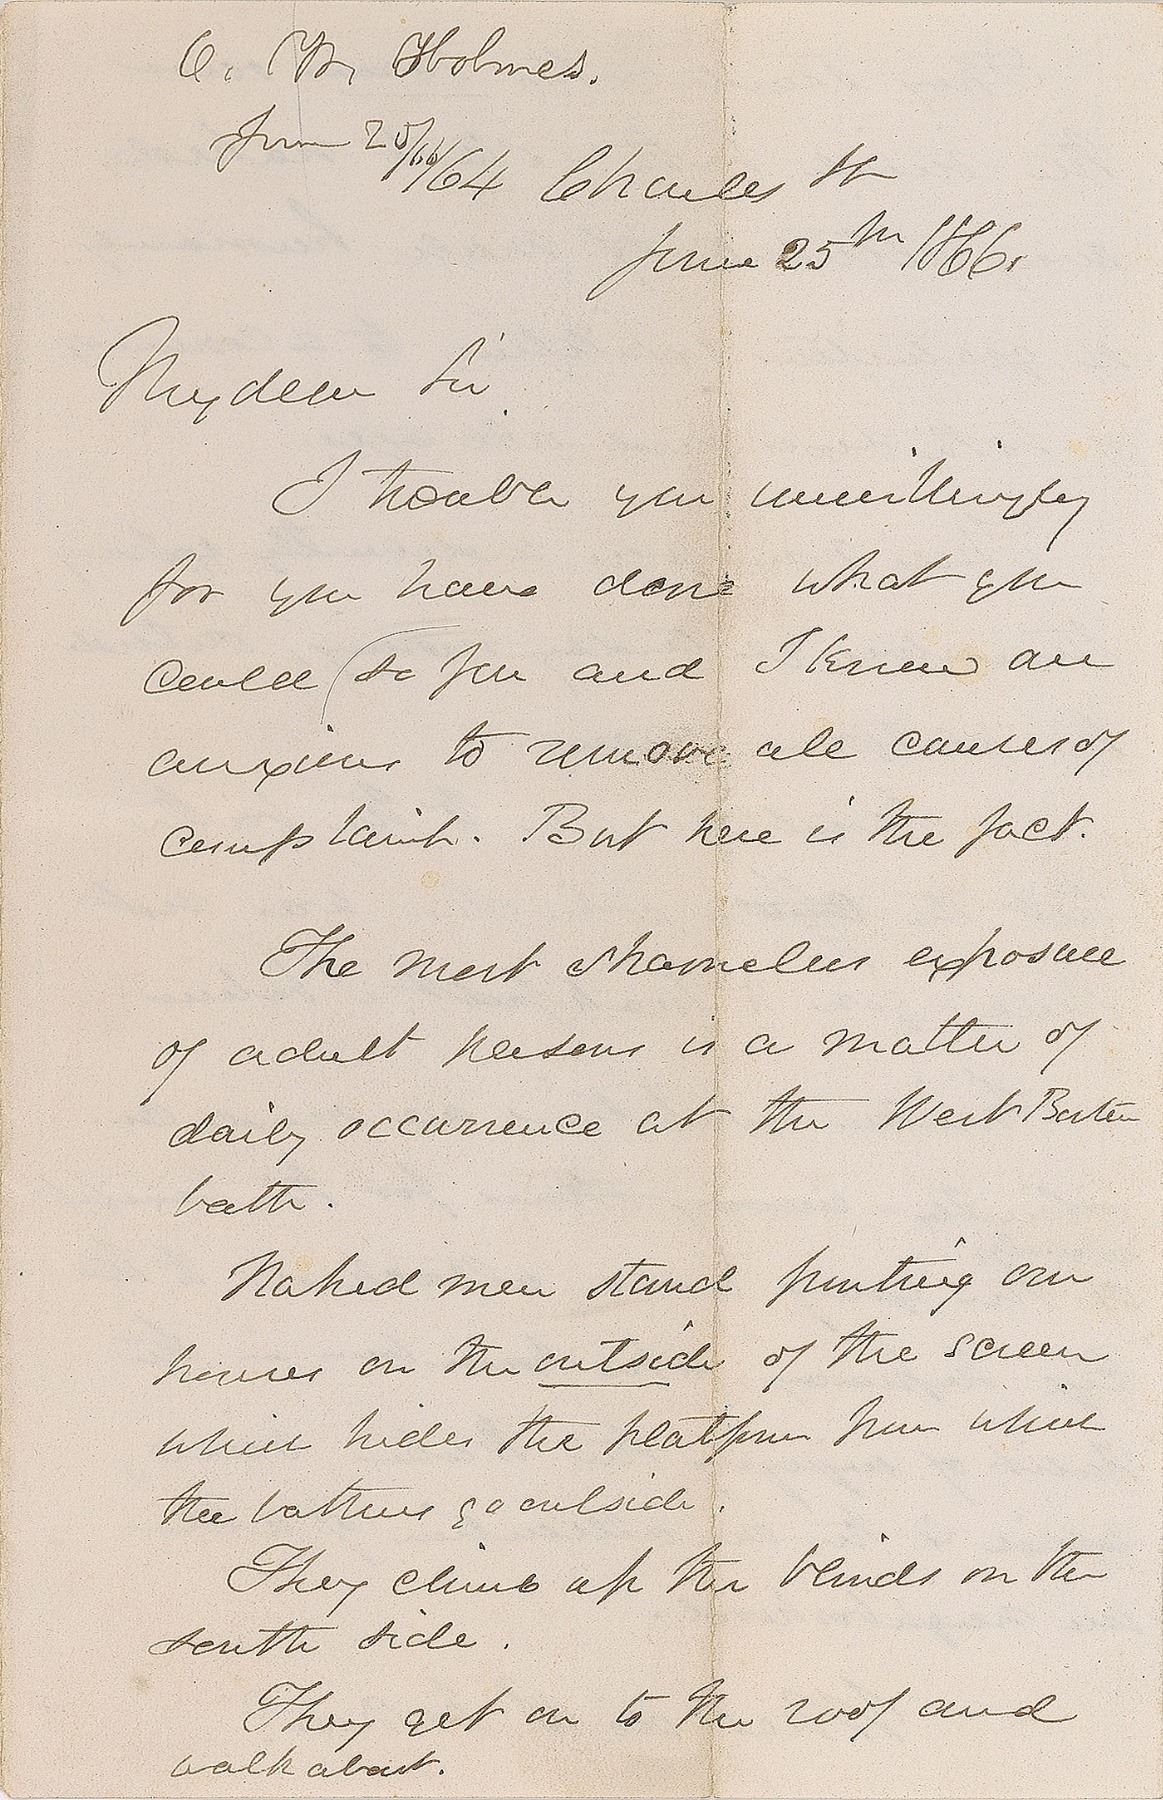 O. W. Holmes.
June 25/66
164 Charles St
June 25th 1866.
My dear Sir
I trouble you unwillingly
for you have done what you
could (so far and I know are
anxious to remove all causes of
complaint. But here is the fact.
The most shameless exposure
of adult persons is a matter of
daily occurrence at the West Boston
bath.
Naked men stand fronting our
houses on the outside of the screen
which hides the platform from which
the bathers go outside.
They climb up the blinds on the
south side.
They get on to the roof and
walk about.